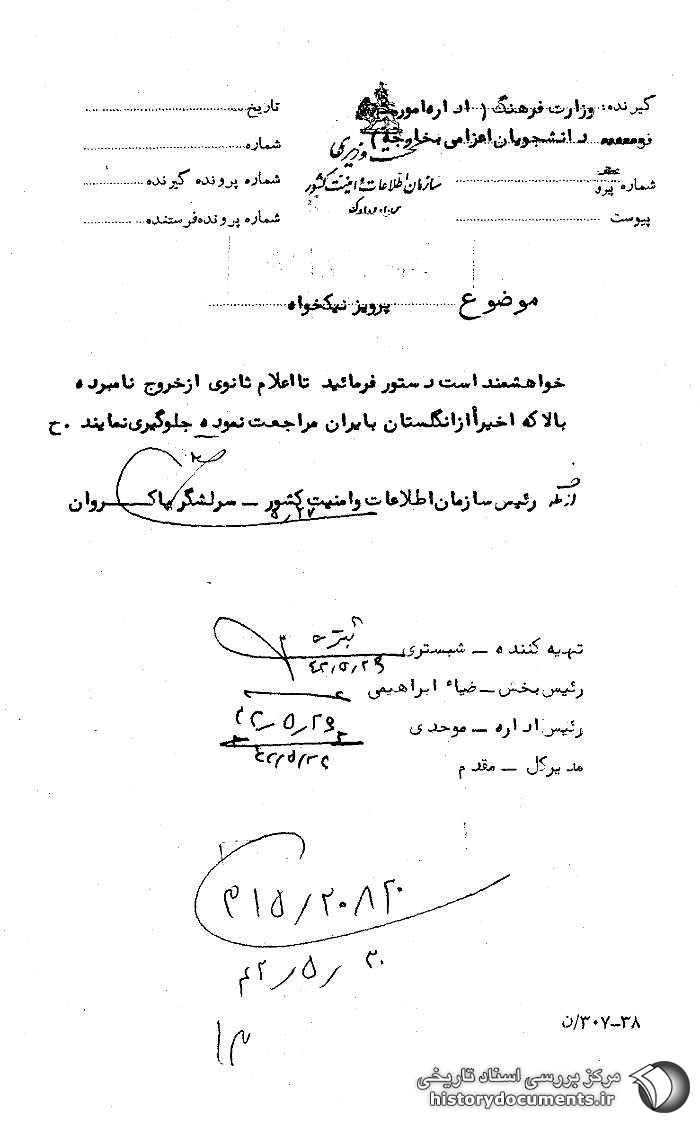 گیرنده: وزارت فرهنگ ( اداره امور
دانشجویان اعزامی بخارجه )
نخست وزیری
سازمان اطلاعات و امنیت کشور
س.ا.و.ا.ک
تاریخ
شماره
شماره پرونده گیرنده
شماره پرونده فرستنده
شماره پیرو
پیوست
موضوع پرویز نیکخواه
خواهشمند است دستور فرمائید تا اعلام ثانوی از خروج نامبرده
بالا که اخیراً از انگلستان بایران مراجعت نموده جلوگیری نمایند . ح
رئیس سازمان اطلاعات وامنیت کشور – سرلشگر پاکروان
۵/۲۷
تهیه کننده – شبستری
۴۲/۵/۲۹
رئیس بخش – ضیاء ابراهیمی
رئیس اداره – موحدی
۴۲/۵/۲۹
مدیرکل – مقدم
۴۲/۵/۲۹
۳۱۵/۲۰۸۲
۴۲/۵/۳۰
۳۸–۳۰۷/ن
مرکز بررسی اسناد تاریخی
historydocuments.ir